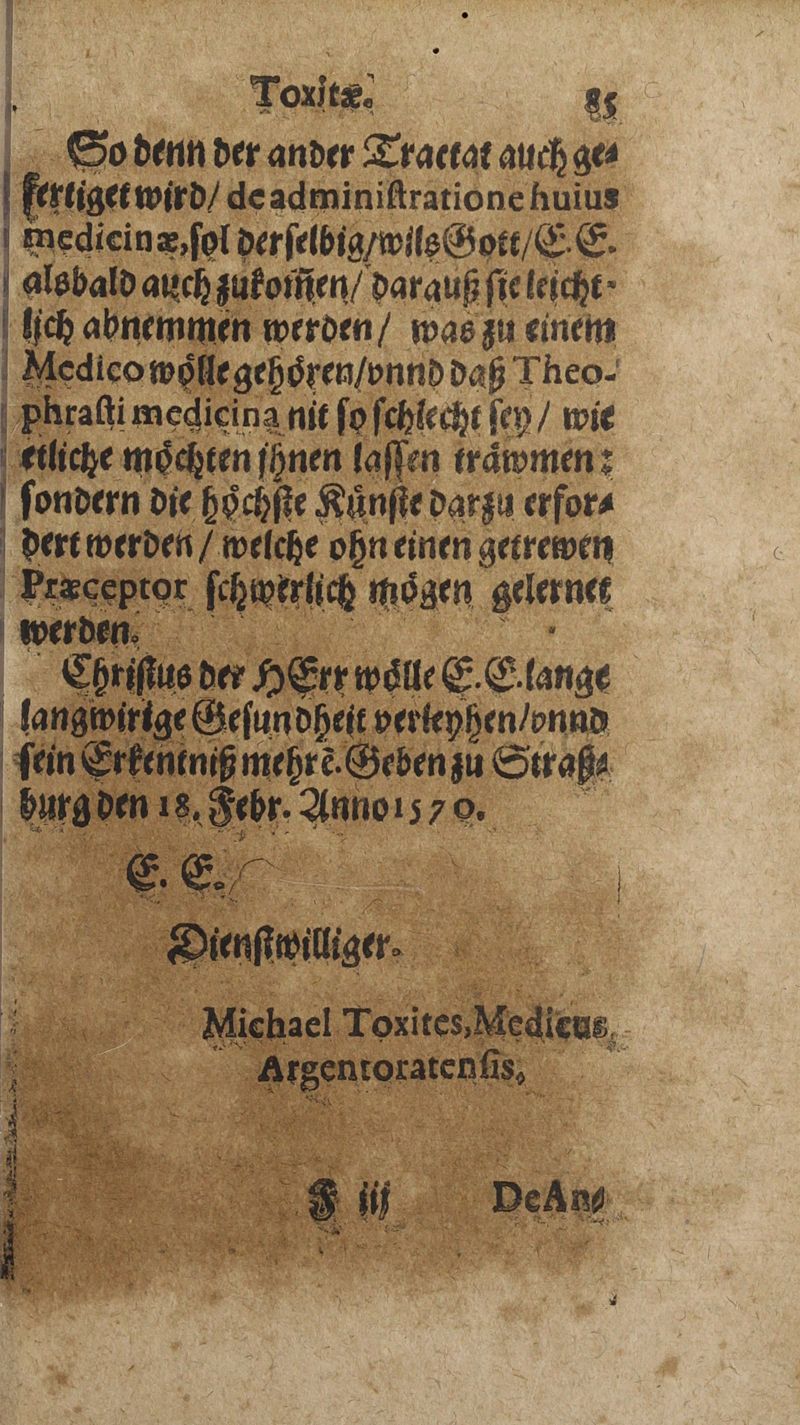 Toxitæ. 85
So denn der ander Tractat auch ge⸗
fertiget wird/ de administratione huius
medicinæ, sol derselbig/wils Gott/E. E.
alsbald auch zukom̃en/ darauß sie leicht⸗
lich abnemmen werden/ was zu einem
Medico wölle gehören/vnnd daß Theo-
phrasti medicina nit so schlecht sey/ wie
etliche möchten jhnen lassen träwmen:
sondern die höchste Künste darzu erfor⸗
dert werden/ welche ohn einen getrewen
Præceptor schwerlich mögen gelernet
werden.
Christus der HErr wölle E. E. lange
langwirige Gesundheit verleyhen/vnnd
sein Erkentniß mehrē. Geben zu Straß⸗
burg den 18. Febr. Anno 1570.
E. E.
Dienstwilliger.
Michael Toxites, Medicus
Argentoratensis,
F iij De An⸗